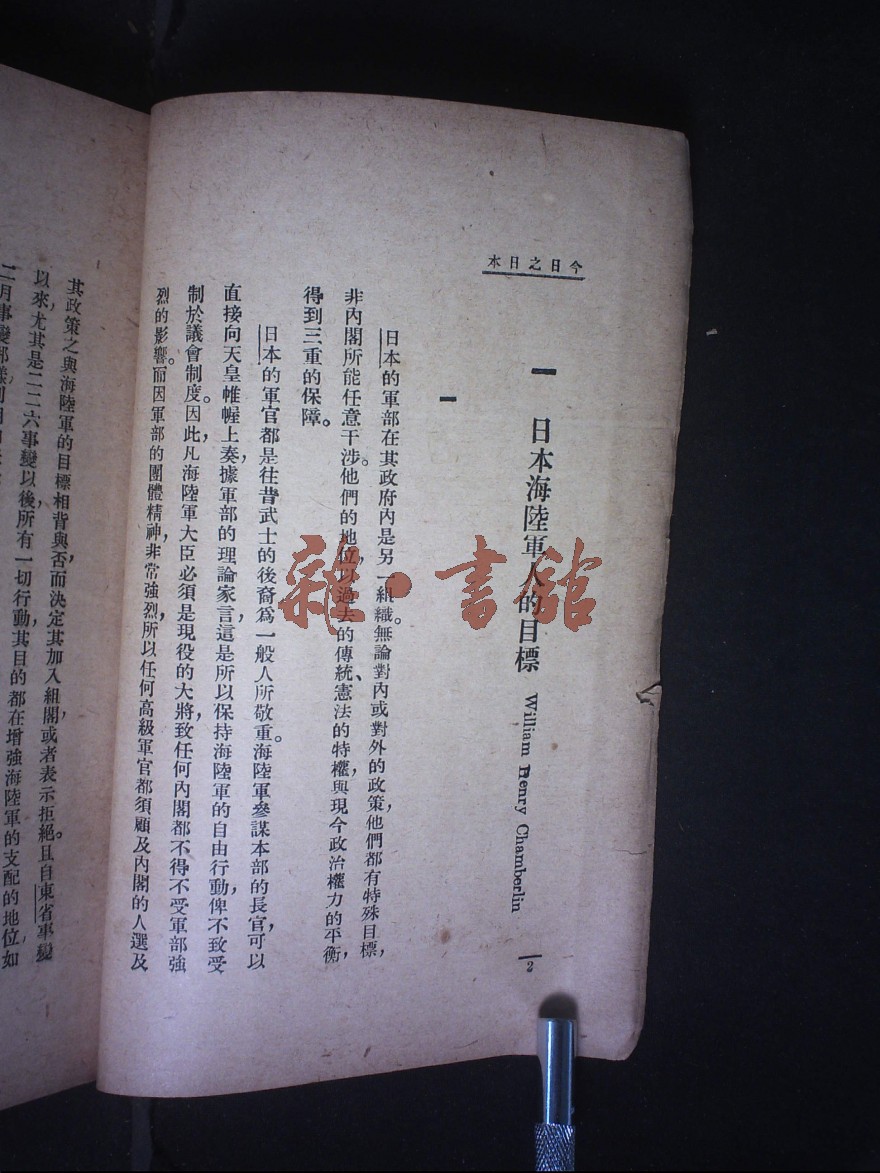 今日之日本
一 日本海陸軍人的目標 William Henry Chamberlin
2
一
日本的軍部在其政府內是另一組織。無論對內或對外的政策,他們都有特殊目標,
非內閣所能任意干涉。他們的地位,以過去的傳統、憲法的特權,與現今政治權力的平衡,
得到三重的保障。
日本的軍官都是往昔武士的後裔,爲一般人所敬重。海陸軍參謀本部的長官,可以
直接向天皇帷幄上奏。據軍部的理論家言,這是所以保持海陸軍的自由行動,俾不致受
制於議會制度。因此,凡海陸軍大臣必須是現役的大將,致任何內閣都不得不受軍部強
烈的影響。而因軍部的團體精神,非常強烈,所以任何高級軍官都須顧及內閣的人選及
其政策之與海陸軍的目標相背與否,而決定其加入組閣或者表示拒絕。且自東省事變
以來,尤其是二二六事變以後,所有一切行動,其目的都在增強海陸軍的支配的地位,如
二月事變
雜·書館